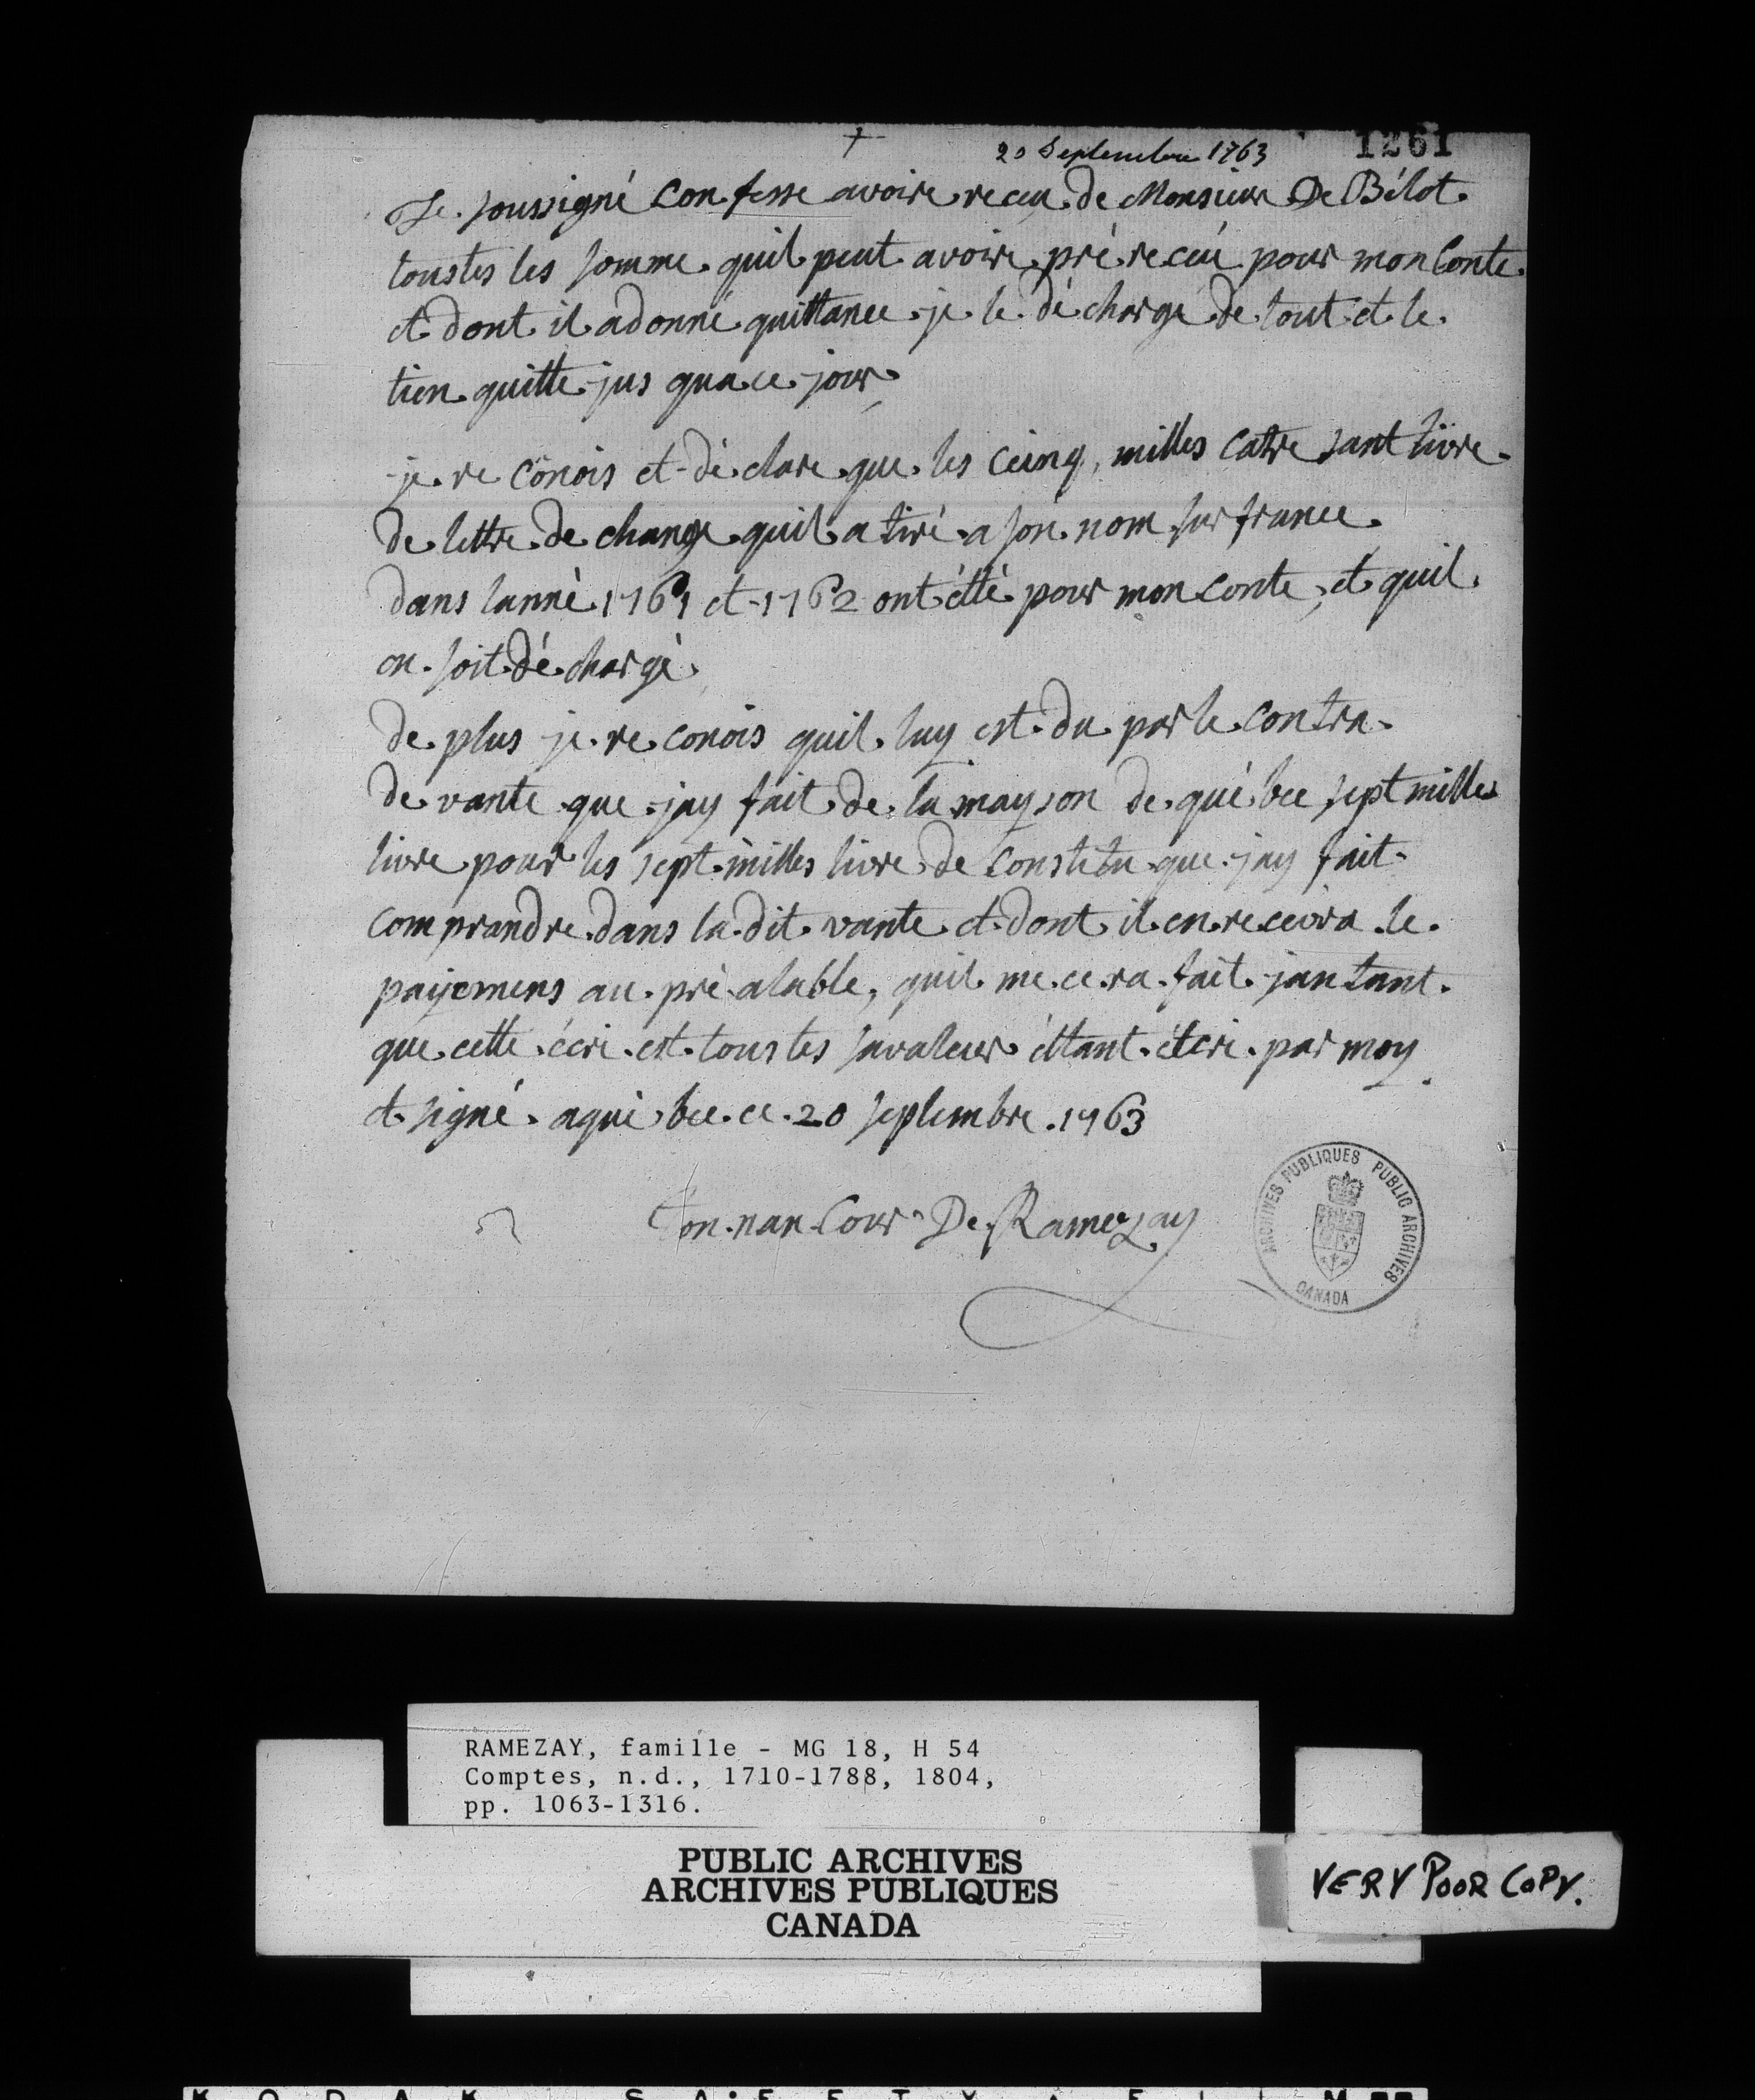 +
20 Septembre 1763
1261
Je soussigné confesse avoire receu de Monsieur De Bélot
toustes les somme quil peut avoire pré receü pour mon Conte
et dont il a donné quittance je le dé charge de tout et le
tien quitte jus qua ce jour
je re cönois et dé clare que les Ceinq milles Catre sant livre
de lettre de change quil a tiré a son nom sur france
dans lannè 1761 et 1762 ont étté pour mon Conte, et quil
en soit dé chargé
de plus je re conois quil luy est du par le contra
de vante que jay fait de la mayson de qué bec sept milles
livre pour les sept milles livre de Constitu que jay fait
comprandre dans la dit vante et dont il en re cevra le
payemens au pré alable, quil me ce ra fait jantant
que cette écri est toustes sa valeur éttant étcri par moy
et signé a qué bec ce 20 septembre 1763
Ton nan Cour De Ramezay
ARCHIVES PUBLIQUES PUBLIC ARCHIVES
CANADA
RAMEZAY, famille - MG 18, H 54
Comptes, n.d., 1710-1788, 1804,
pp. 1063-1316.
PUBLIC ARCHIVES
ARCHIVES PUBLIQUES
CANADA
VERY POOR COPY.
KODAK SAFETY FILM